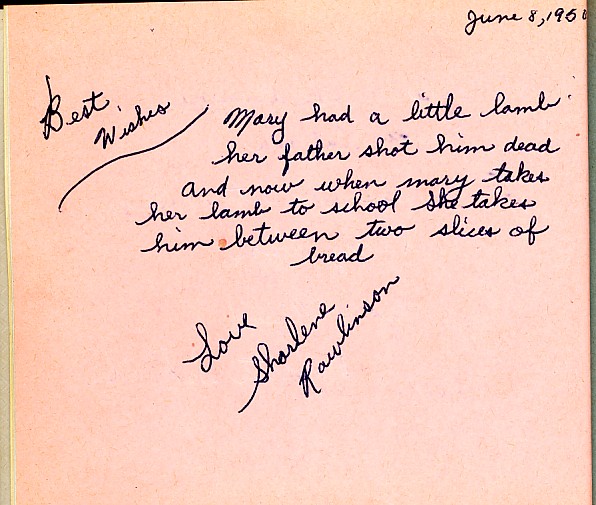 June 8, 195
Best
Wishes
Mary had a little lamb
her father shot him dead
and now when mary takes
her lamb to school she takes
him between two slices of
bread
Love
Sharlene
Rawlinson